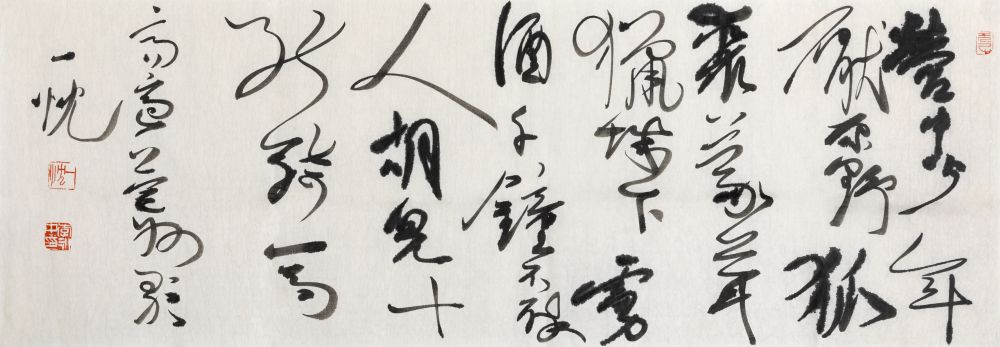 營州少年
厭原野狐
裘蒙茸
獵城下虜
酒千鐘不醉
人胡兒十
能騎馬
高適營州歌
一忱